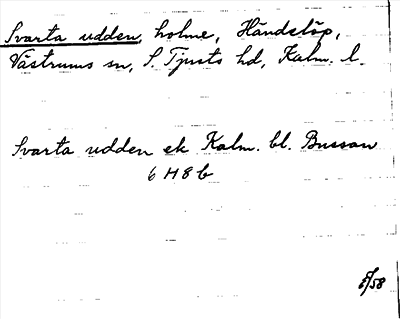 Svarta udden, holme, Händelöp,
Västrums sn, S. Tjusts hd, Kalm. l.
Svarta udden ek Kalm. bl. Bussan
6 H 8 b
/58